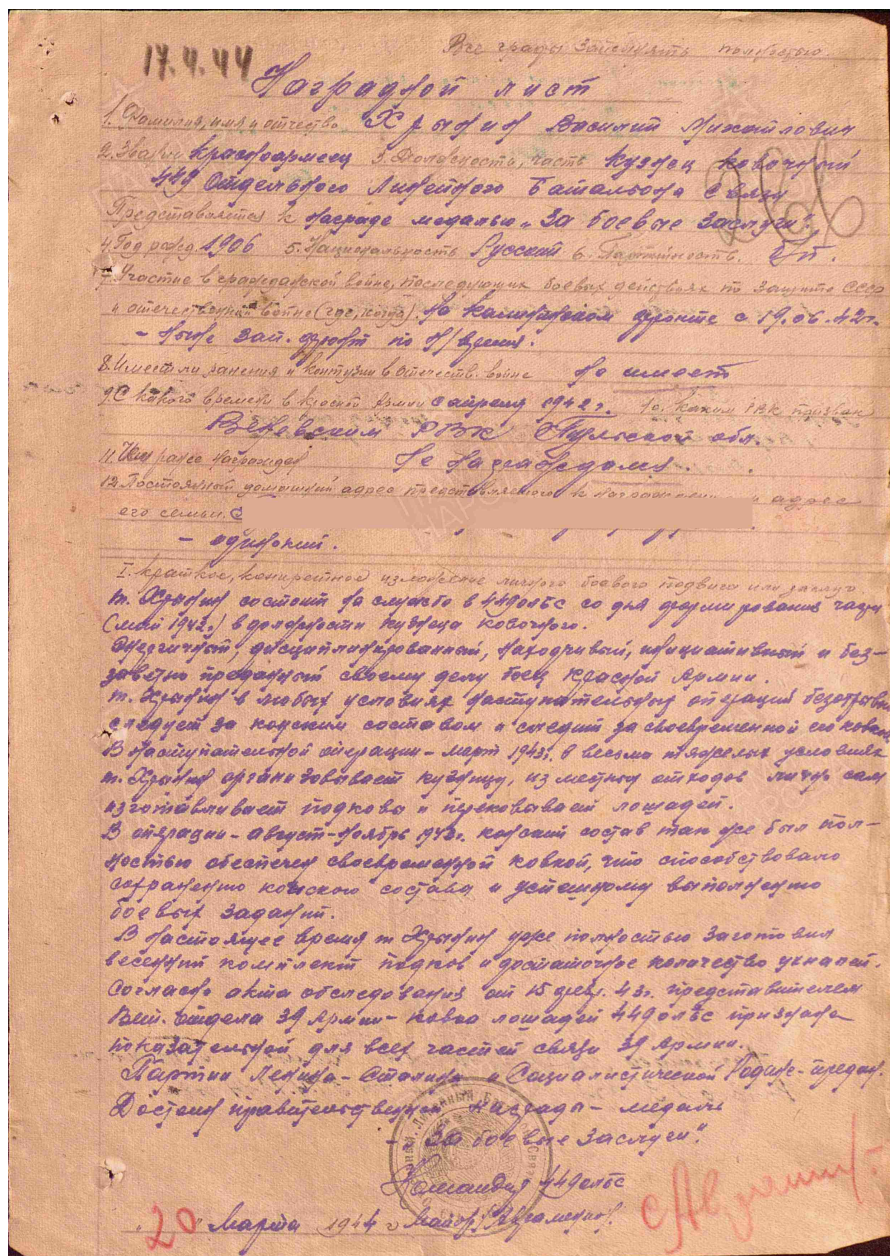 Все графы заполнять полностью.
17.4.44
Наградной лист
1. Фамилия, имя и отчество Хрынин Василий Михайлович
2. Звание Красноармеец 3. Должность, часть Кузнец ковочный
449 Отдельного Линейного Батальона Связи
Представляется к награде медалью „За боевые заслуги".
4. Год рожд. 1906 5. Национальность Русский 6. Партийность. б/п.
7. Участие в гражданской войне, последующих боевых действиях по защите СССР
и отечественной войне (где, когда). На Калининском фронте с 19.06.42 г.
- ныне Зап. фронт по н/время.
8. Имеет ли ранения и контузии в Отечеств. войне Не имеет
9. С какого времени в красной армии с апреля 1942 г. 10. каким РВК призван
Веневским РВК Тульской обл.
11. Чем ранее награжден Не награждался.
12. Постоянный домашний адрес представляемого к и адрес
его семьи.
- одинокий.
I. краткое, конкретное изложение личного боевого подвига или заслуг
т. Хрынин состоит на службе в 449 олбс со дня формирования части
(май 1942 г.) в должности кузнеца ковочного.
Энергичный, дисциплинированный, находчивый, инициативный и без-
заветно преданный своему делу боец Красной Армии.
т. Хрынин в любых условиях наступательных операций безотрывно
следует за конским составом и следит за своевременной его ковкой.
В наступательной операции - март 1943 г. в весьма тяжелых условиях
т. Хрынин организовывает кузницу, из местных отходов лично сам
изготавливает подковы и перековывает лошадей.
В операции - август-ноябрь 1943 г. конский состав так же был пол-
ностью обеспечен своевременной ковкой, что способствовало
сохранению конского состава и успешному выполнению
боевых заданий.
В настоящее время т. Хрынин уже полностью заготовил
весенний комплект подков и достаточное количество ухналей.
Согласно акта обследования от 15 февр. 43 г. представителем
Вет. отдела 39 Армии - ковка лошадей 449 олбс признана
показательной для всех частей связи 39 Армии.
Партии Ленина - Сталина и Социалистической Родине - предан.
Достоин правительственной награды - медаль
- „За боевые заслуги".
Командир 449 олбс
„20" Марта 1944 г. Майор